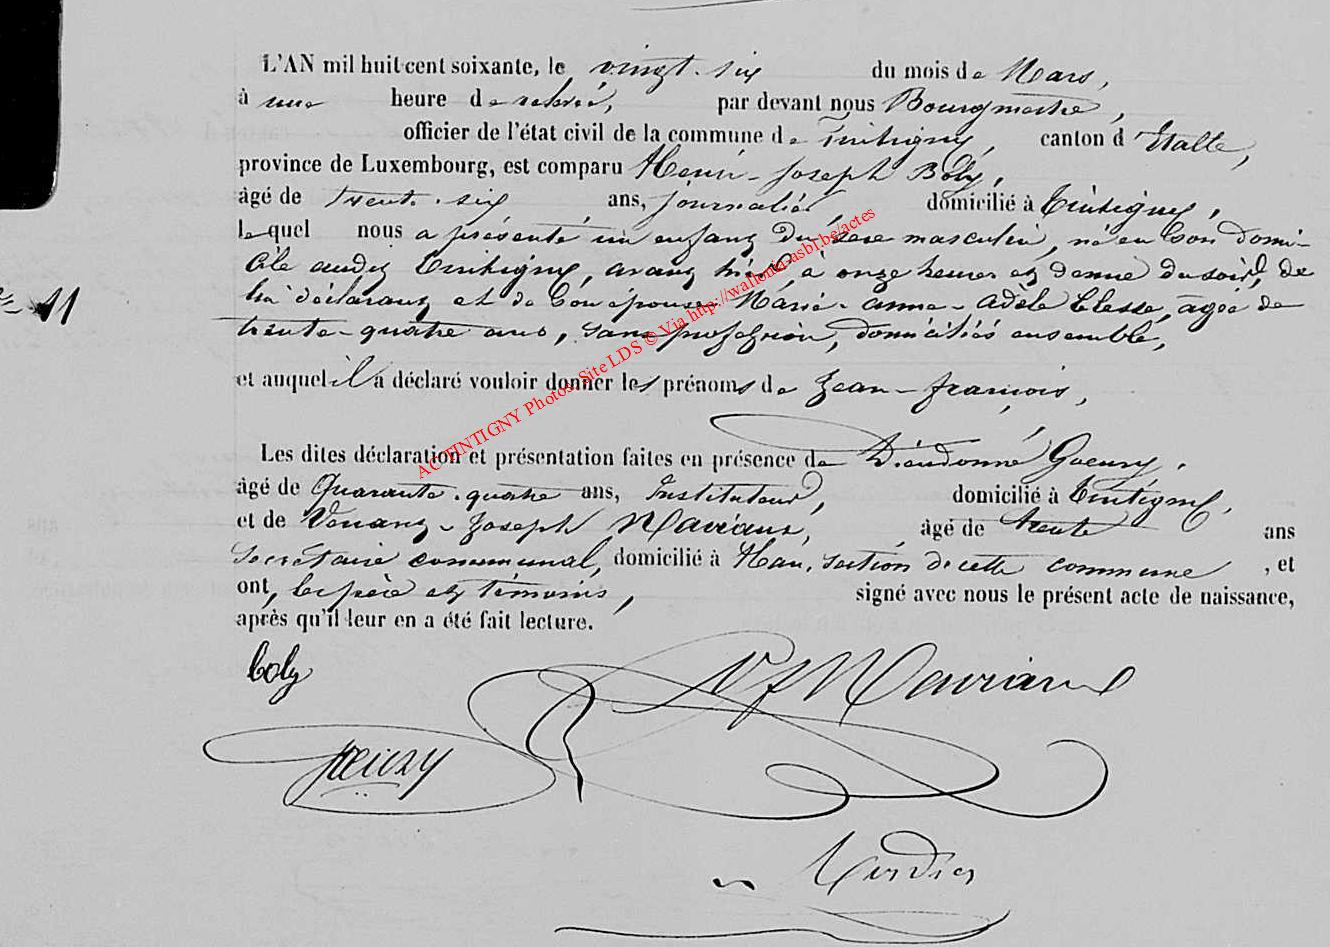 L'AN mil huit cent soixante, le vingt-six du mois de Mars,
à une heure de relevé, par devant nous Bourgmestre,
officier de l'état civil de la commune de Tintigny, canton d'Etalle,
province de Luxembourg, est comparu Henri-Joseph Boly,
âgé de trente-six ans, journalier, domicilié à Tintigny,
lequel nous a présenté un enfant du sexe masculin, né en son domi-
cile audit Tintigny, avant hier à onze heures et demie du soir, de
11
lui déclarant et de son épouse Marie-anne-adèle, agée de
trente-quatre ans, sans profession, domiciliés ensemble,
et auquel il a déclaré vouloir donner les prénoms de Jean-françois,
Les dites déclaration et présentation faites en présence de Dieudonné Goeury,
âgé de Quarante-quatre ans, Instituteur, domicilié à Tintigny,
et de Venant-Joseph Mavians, âgé de trente ans
secrétaire communal, domicilié à Han, section de cette commune, et
ont, les père et témoins, signé avec nous le présent acte de naissance,
après qu'il leur en a été fait lecture.
AC TINTIGNY Photos Site LDS © Via http://wallonia-asbl.be/actes
boly
Goeury